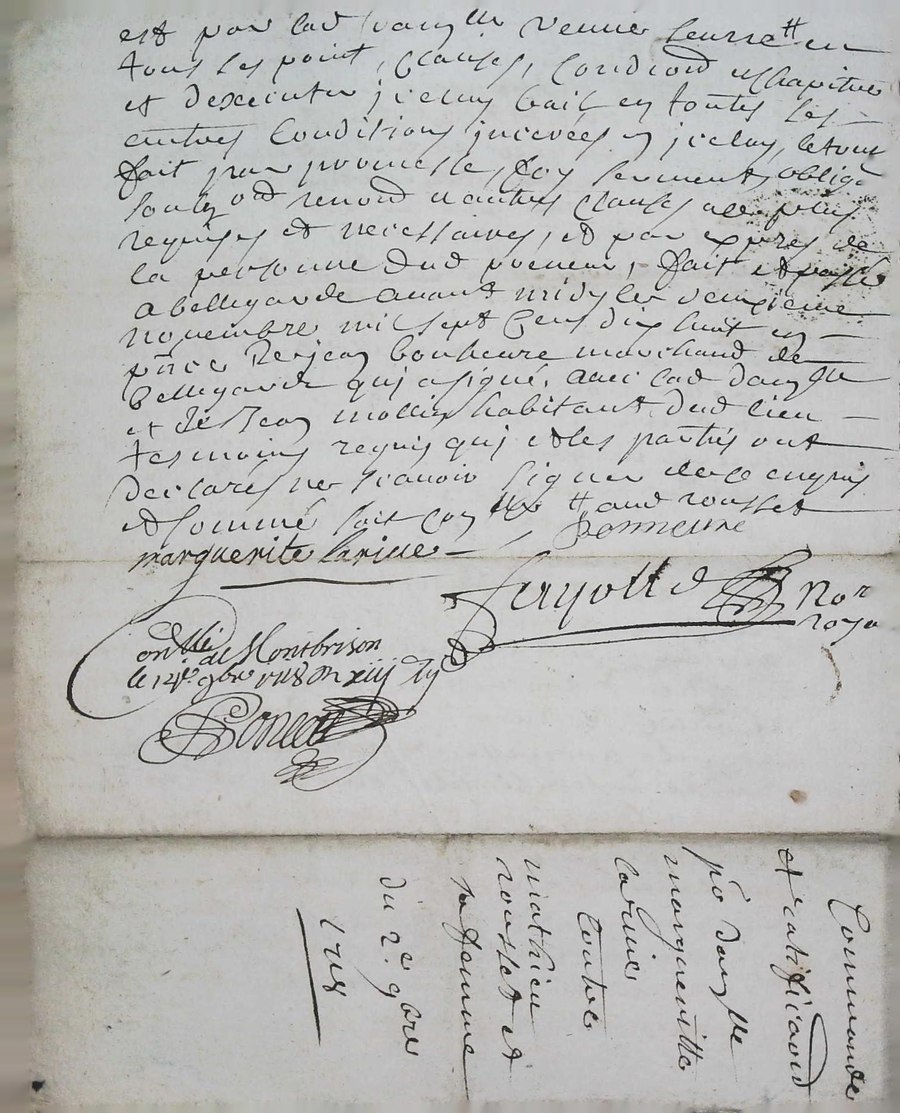 est par lad damlle
tous les point, clauses, condiond et chapitre
et dexecuter jceluy bail en toutes les
autres conditions incerées en jceluy, le tout
fait par promesse, foy serment, oblign
renond et autres clauses
requises et necessaires, et par expres de
la personne dud preneur, fait et passé
a bellegarde avant midy le deuxieme
novembre mil sept cens dix huit en
pnce de sr jean bonheure marchand de
bellegarde qui a signé, avec lad damlle
et de jean mollin habitant dud lieu
tesmoins requis qui et les partiés ont
declarés ne scavoir signer de ce enquis
et sommé soit con aud rousset
marguerite lariue
Bonheure
nore
royal
onllé de Montbrison
le 14e 9bre 1718
Commande
et ratificaond
po damlle
margueritte
lariue
Contre
mathieu
rousset et
sa femme
du 2e 9bre
1718